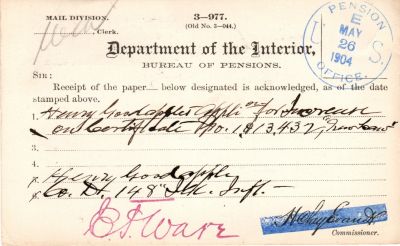 MAIL DIVISION.
3—977.
(Old No. 3—044.)
, Clerk.
PENSION OFFICE
U. S.
E
MAY
26
1904
Department of the Interior,
BUREAU OF PENSIONS.
SIR:
Receipt of the paper below designated is acknowledged, as of the date
stamped above.
1. Henry Goodapple's appli on for Increase
on Certificate No. 1,913,432, "New Law"
3.
4.
Henry Goodapple
Co. H, 148" Ill. Inft.
E. F. Ware
Commissioner.